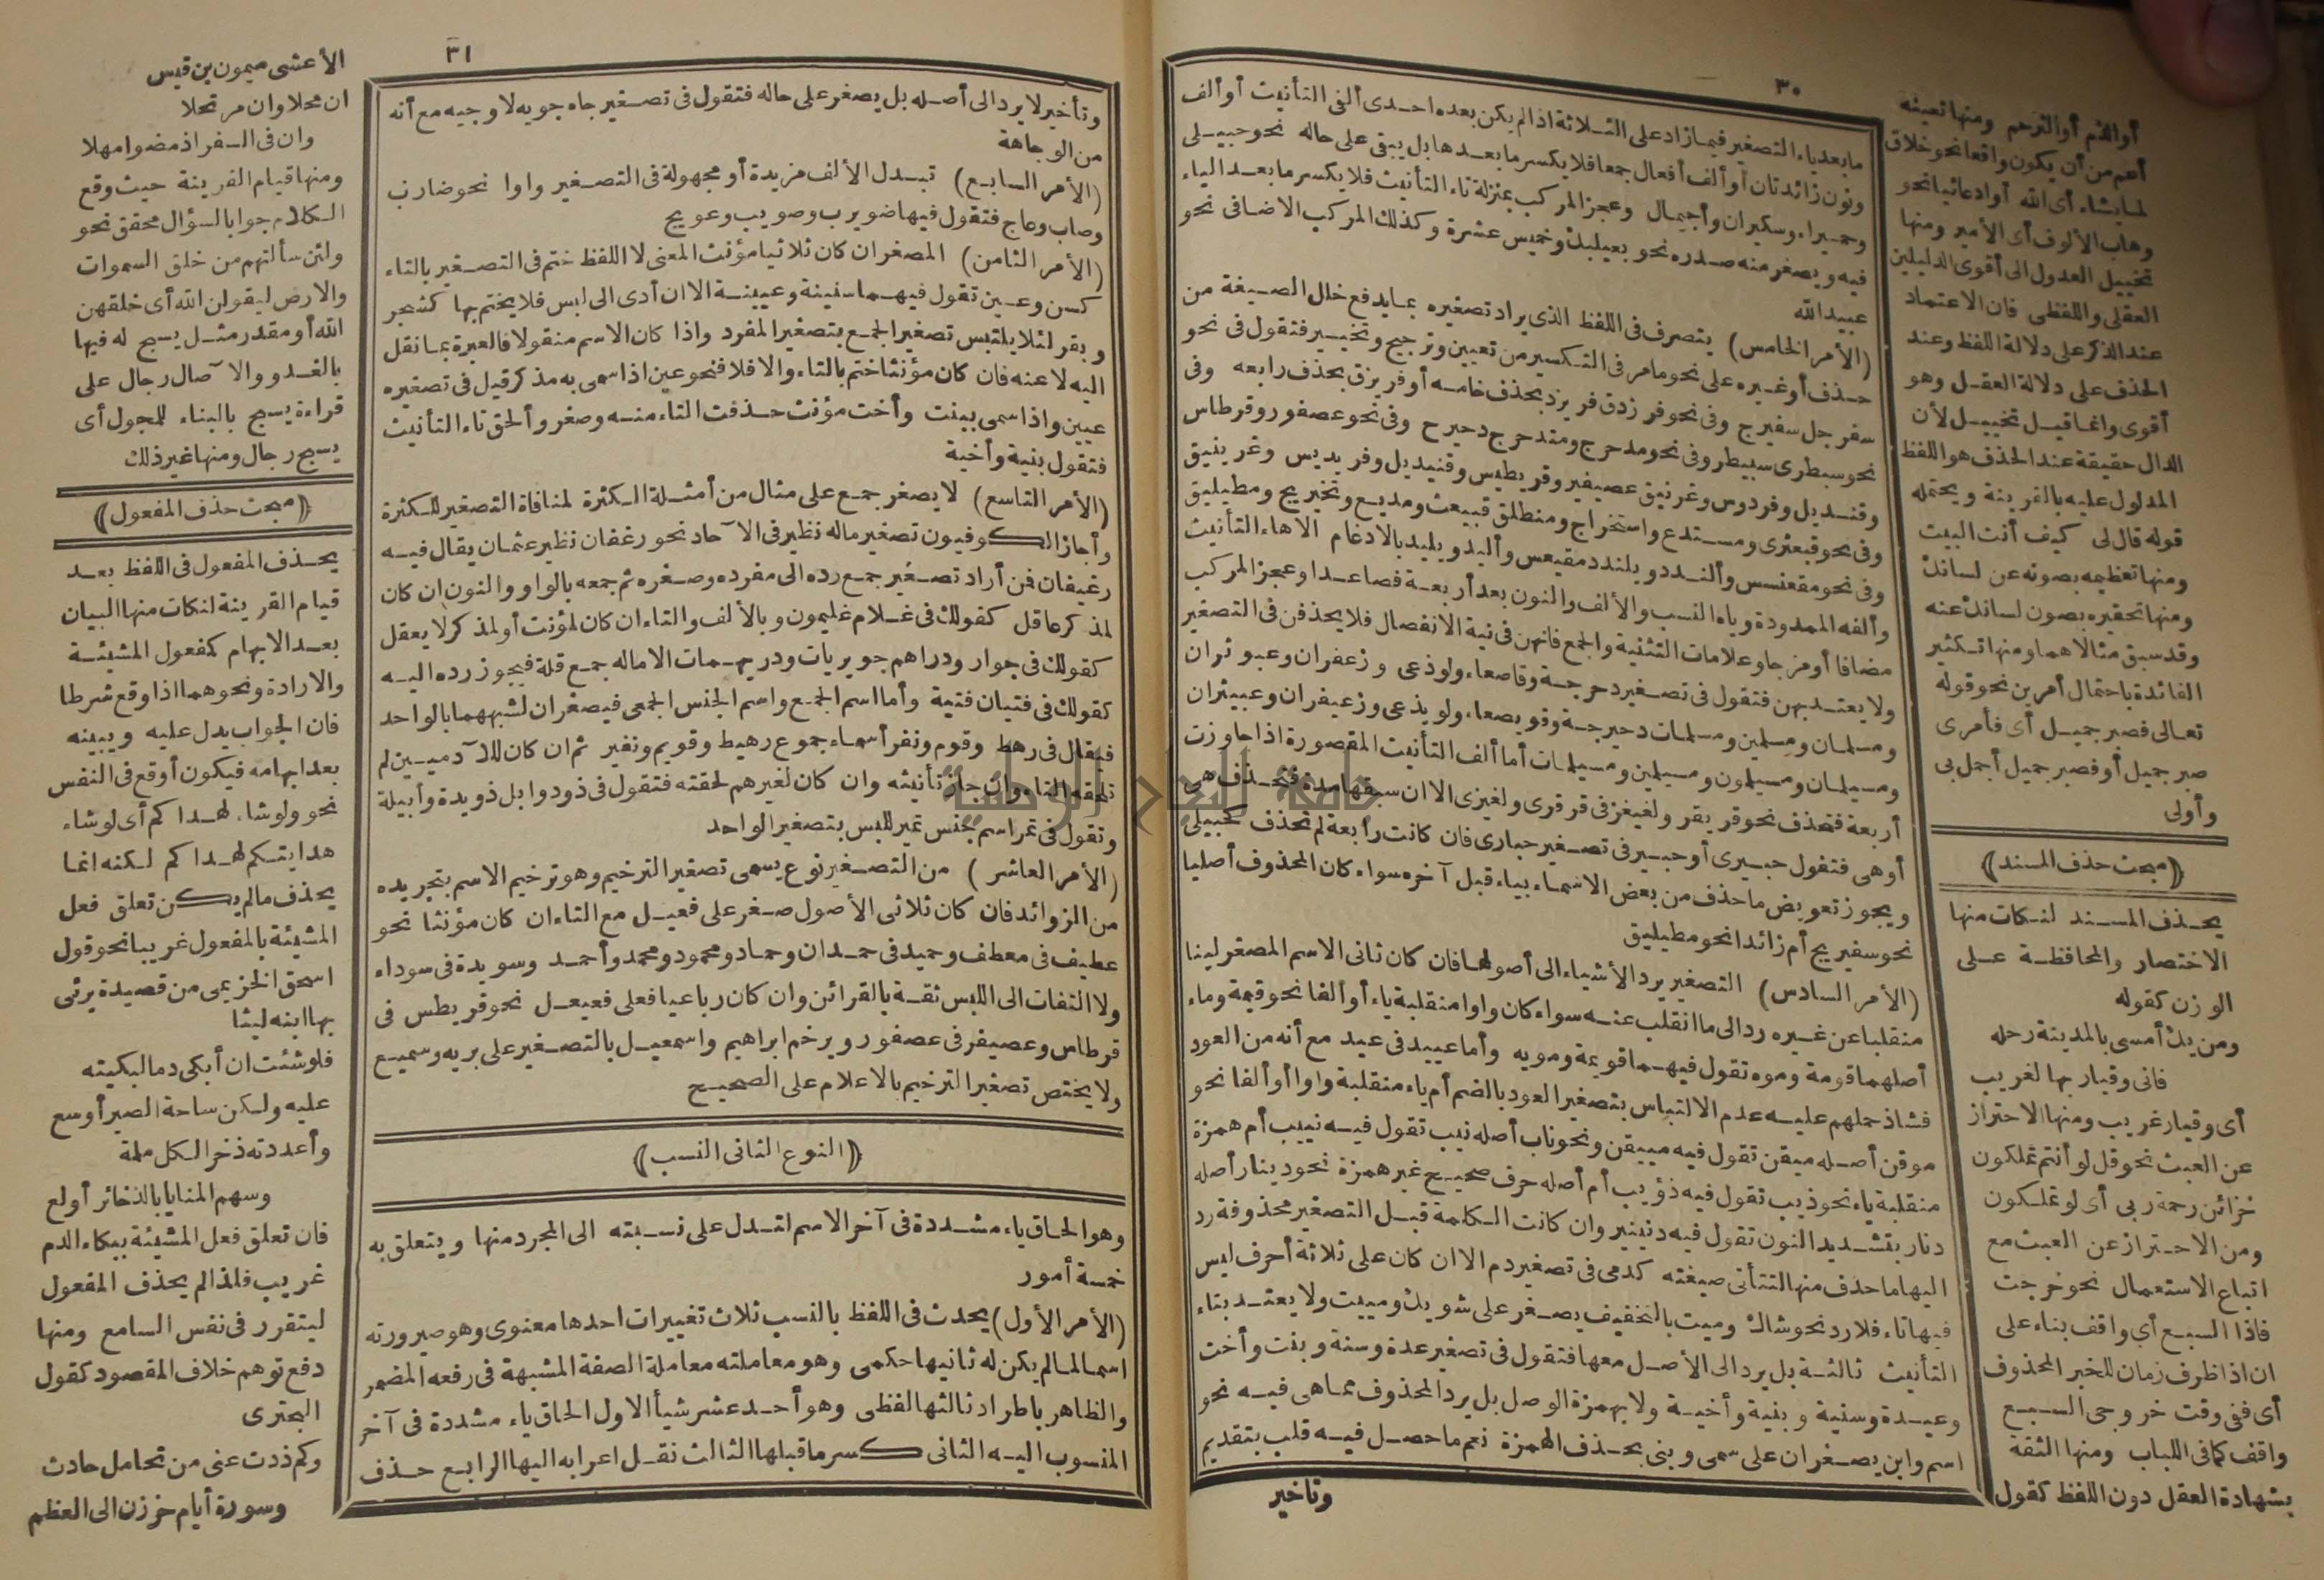 ٣٠
ما بعد ياء التصغير فيما زاد على الثلاثة اذا لم يكن بعده احدى ألفى التأنيث أو ألف
ونون زائدتان أو ألف أفعال جمعا فلا يكسر ما بعدها بل يبقى على حاله نحو حبيلى
وحميراء وسكيران وأجيمال وعجز المركب بمنزلة تاء التأنيث فلا يكسر ما بعد الياء
فيه ويصغر منه صدره نحو بعيلبك وخميس عشرة وكذلك المركب الاضافى نحو
عبيد الله
(الأمر الخامس) يتصرف فى اللفظ الذى يراد تصغيره بما يدفع خلل الصيغة من
حذف أو غيره على نحو ما مر فى التكسير من تعيين وترجيح وتخيير فتقول فى نحو
سفرجل سفيرج وفى نحو فرزدق فريزد بحذف خامسه أو فريزق بحذف رابعه وفى
نحو سبطرى سبيطر وفى نحو مدحرج ومتدحرج دحيرج وفى نحو عصفور وقرطاس
وقنديل وفردوس وغرنيق عصيفير وقريطيس وقنيديل وفريديس وغرينيق
وفى نحو قبعثرى ومستدع واستخراج ومنطلق قبيعث ومديع وتخيريج ومطيليق
وفى نحو مقعنسس وألندد ويلندد مقيعس وأليد ويليد بالادغام الا هاء التأنيث
وألفه الممدودة وياء النسب والألف والنون بعد أربعة فصاعدا وعجز المركب
مضافا أو مزجا وعلامات التثنية والجمع فانهن فى نية الانفصال فلا يحذفن فى التصغير
ولا يعتد بهن فتقول فى تصغير دحرجة وقاصعاء ولوذعى وزعفران وعبوثران
ومسلمان ومسلمين ومسلمات دحيرجة وقويصعاء ولويذعى وزعيفران وعبيثران
ومسيلمان ومسيلمون ومسيلمين ومسيلمات أما ألف التأنيث المقصورة اذا جاوزت
أربعة فتحذف نحو قريقر ولغيغز فى قرقرى ولغيزى الا ان سبقها مدة فتحذف هى
أو هى فتقول حبيرى أو حبير فى تصغير حبارى فان كانت رابعة لم تحذف كحبيلى
ويجوز تعويض ما حذف من بعض الاسماء بياء قبل آخره سواء كان المحذوف أصليا
نحو سفيريج أم زائدا نحو مطيليق
(الأمر السادس) التصغير يرد الأشياء الى أصولها فان كان ثانى الاسم المصغر لينا
منقلبا عن غيره رد الى ما انقلب عنه سواء كان واوا منقلبة ياء أو ألفا نحو قيمة وماء
أصلهما قومة وموه تقول فيهما قويمة ومويه وأما عييد فى عيد مع أنه من العود
فشاذ حملهم عليه عدم الالتباس بتصغير العود بالضم أم ياء منقلبة واوا أو ألفا نحو
موقن أصله ميقن تقول فيه مييقن ونحو ناب أصله نيب تقول فيه نييب أم همزة
منقلبة ياء نحو ذيب تقول فيه ذؤيب أم أصله حرف صحيح غير همزة نحو دينار أصله
دنار بتشديد النون تقول فيه دنينير وان كانت الكلمة قبل التصغير محذوفة رد
اليها ما حذف منها لتتأتى صيغته كدمى فى تصغير دم الا ان كان على ثلاثة أحرف ليس
فيها تاء فلا رد نحو شاك وميت بالتخفيف يصغر على شويك ومييت ولا يعتد بتاء
التأنيث ثالثة بل يرد الى الأصل معها فتقول فى تصغير عدة وسنة وبنت وأخت
وعيدة وسنية وبنية وأخية ولا بهمزة الوصل بل يرد المحذوف مما هى فيه نحو
اسم وابن يصغران على سمى وبنى بحذف الهمزة نعم ما حصل فيه قلب بتقديم
وتأخير
أو الذم أو الترحم ومنها تعينه
أعم من أن يكون واقعا نحو خلاق
لما يشاء أى الله أو ادعائيا نحو
وهاب الألوف أى الأمير ومنها
تخييل العدول الى أقوى الدليلين
العقلى واللفظى فان الاعتماد
عند الذكر على دلالة اللفظ وعند
الحذف على دلالة العقل وهو
أقوى وانما قيل تخييل لأن
الدال حقيقة عند الحذف هو اللفظ
المدلول عليه بالقرينة ويحتمله
قوله قال لى كيف أنت البيت
ومنها تعظيمه بصونه عن لسانك
ومنها تحقيره بصون لسانك عنه
وقد سبق مثالاهما ومنها تكثير
الفائدة باحتمال أمرين نحو قوله
تعالى فصبر جميل أى فأمرى
صبر جميل أو فصبر جميل أجمل بى
وأولى
(مبحث حذف المسند)
يحذف المسند لنكات منها
الاختصار والمحافظة على
الوزن كقوله
ومن يك أمسى بالمدينة رحله
فانى وقيار بها لغريب
أى وقيار غريب ومنها الاحتراز
عن العبث نحو قل لو أنتم تملكون
خزائن رحمة ربى أى لو تملكون
ومن الاحتراز عن العبث مع
اتباع الاستعمال نحو خرجت
فاذا السبع أى واقف بناء على
ان اذا ظرف زمان للخبر المحذوف
أى ففى وقت خروجى السبع
واقف كما فى اللباب ومنها الثقة
بشهادة العقل دون اللفظ كقول
٣١
وتأخير لا يرد الى أصله بل يصغر على حاله فتقول فى تصغير جاه جويه لا وجيه مع أنه
من الوجاهة
(الأمر السابع) تبدل الألف مزيدة أو مجهولة فى التصغير واوا نحو ضارب
وصاب وعاج فتقول فيها ضويرب وصويب وعويج
(الأمر الثامن) المصغر ان كان ثلاثيا مؤنث المعنى لا اللفظ ختم فى التصغير بالتاء
كسن وعين تقول فيهما سنينة وعيينة الا ان أدى الى لبس فلا يختم بها كشجر
وبقر لئلا يلتبس تصغير الجمع بتصغير المفرد واذا كان الاسم منقولا فالعبرة بما نقل
اليه لا عنه فان كان مؤنثا ختم بالتاء والا فلا فنحو عين اذا سمى به مذكر قيل فى تصغيره
عيين واذا سمى ببنت وأخت مؤنث حذفت التاء منه وصغر وألحق تاء التأنيث
فتقول بنية وأخية
(الأمر التاسع) لا يصغر جمع على مثال من أمثلة الكثرة لمنافاة التصغير للكثرة
وأجاز الكوفيون تصغير ماله نظير فى الآحاد نحو رغفان نظير عثمان يقال فيه
رغيفان فمن أراد تصغير جمع رده الى مفرده وصغره ثم جمعه بالواو والنون ان كان
لمذكر عاقل كقولك فى غلام غليمون وبالألف والتاء ان كان لمؤنث أو لمذكر لا يعقل
كقولك فى جوار ودراهم جويريات ودريهمات الا ماله جمع قلة فيجوز رده اليه
كقولك فى فتيان فتية وأما اسم الجمع واسم الجنس الجمعى فيصغران لشبههما بالواحد
فيقال فى رهط وقوم ونفر أسماء جموع رهيط وقويم ونفير ثم ان كان للآدميين لم
تلحقه التاء وان جاز تأنيثه وان كان لغيرهم لحقته فتقول فى ذود وابل ذويدة وأبيلة
وتقول فى تمر اسم جنس تمير للبس بتصغير الواحد
(الأمر العاشر) من التصغير نوع يسمى تصغير الترخيم وهو ترخيم الاسم بتجريده
من الزوائد فان كان ثلاثى الأصول صغر على فعيل مع التاء ان كان مؤنثا نحو
عطيف فى معطف وحميد فى حمدان وحماد ومحمود ومحمد وأحمد وسويدة فى سوداء
ولا التفات الى اللبس ثقة بالقرائن وان كان رباعيا فعلى فعيعل نحو قريطس فى
قرطاس وعصيفر فى عصفور ويرخم ابراهيم واسمعيل بالتصغير على بريه وسميع
ولا يختص تصغير الترخيم بالاعلام على الصحيح
(النوع الثانى النسب)
وهو الحاق ياء مشددة فى آخر الاسم لتدل على نسبته الى المجرد منها ويتعلق به
خمسة أمور
(الأمر الأول) يحدث فى اللفظ بالنسب ثلاث تغييرات احدها معنوى وهو صيرورته
اسما لما لم يكن له ثانيها حكمى وهو معاملته معاملة الصفة المشبهة فى رفعه المضمر
والظاهر باطراد ثالثها لفظى وهو أحد عشر شيأ الاول الحاق ياء مشددة فى آخر
المنسوب اليه الثانى كسر ما قبلها الثالث نقل اعرابه اليها الرابع حذف
الأعشى ميمون بن قيس
ان محلا وان مرتحلا
وان فى السفر اذ مضوا مهلا
ومنها قيام القرينة حيث وقع
الكلام جوابا لسؤال محقق نحو
ولئن سألتهم من خلق السموات
والارض ليقولن الله أى خلقهن
الله أو مقدر مثل يسبح له فيها
بالغدو والآصال رجال على
قراءة يسبح بالبناء للمجول أى
يسبح رجال ومنها غير ذلك
(مبحث حذف المفعول)
يحذف المفعول فى اللفظ بعد
قيام القرينة لنكات منها البيان
بعد الابهام كمفعول المشيئة
والارادة ونحوهما اذا وقع شرطا
فان الجواب يدل عليه ويبينه
بعد ابهامه فيكون أوقع فى النفس
نحو ولو شاء لهداكم أى لو شاء
هدايتكم لهداكم لكنه انما
يحذف ما لم يكن تعلق فعل
المشيئة بالمفعول غريبا نحو قول
اسحق الخزيمى من قصيدة يرثى
بها ابنه ليثا
فلو شئت ان أبكى دما لبكيته
عليه ولكن ساحة الصبر أوسع
وأعددته ذخرا لكل ملمة
وسهم المنايا بالذخائر أولع
فان تعلق فعل المشيئة ببكاء الدم
غريب فلذا لم يحذف المفعول
ليتقرر فى نفس السامع ومنها
دفع توهم خلاف المقصود كقول
البحترى
وكم ذدت عنى من تحامل حادث
وسورة أيام حززن الى العظم
جامعة النجاح الوطنية